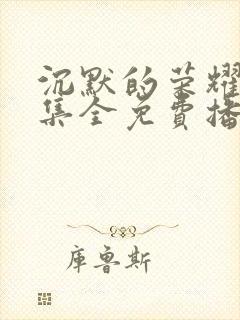 沉默的荣耀
集全免費播
庫魯斯